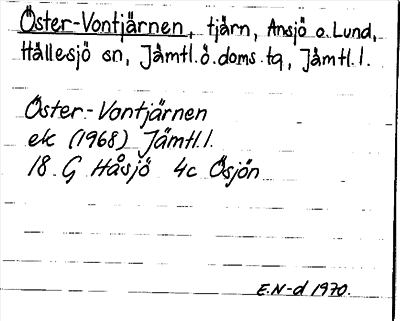 Öster-Vontjärnen, tjärn, Ansjö o. Lund,
Hällesjö sn, Jämtl.ö.doms.tg, Jämtl.l.
Öster-Vontjärnen
ek (1968) Jämtl.l.
18 G Håsjö 4c Ösjön
E.N-d 1970.